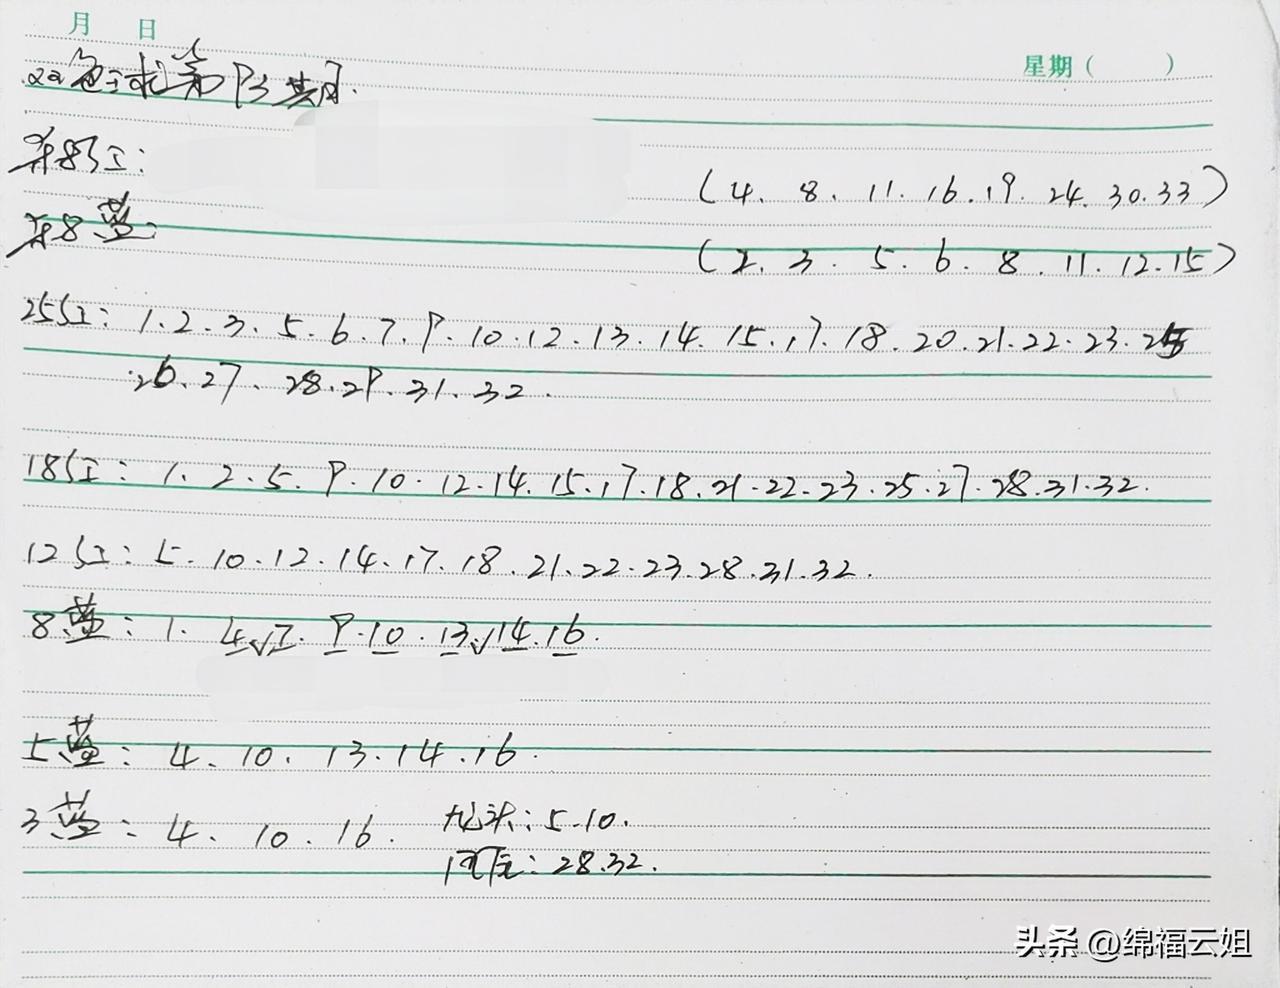 月 日
星期( )
双色球第93期.
杀8红:
(4. 8. 11. 16. 19. 24. 30. 33)
杀8蓝:
(2. 3. 5. 6. 8. 11. 12. 15)
25红: 1. 2. 3. 5. 6. 7. 9. 10. 12. 13. 14. 15. 17. 18. 20. 21. 22. 23. 25
.26. 27. 28. 29. 31. 32.
18红: 1. 2. 5. 9. 10. 12. 14. 15. 17. 18. 21. 22. 23. 25. 27. 28. 31. 32.
12红: 5. 10. 12. 14. 17. 18. 21. 22. 23. 28. 31. 32.
8蓝: 1. 4√7. 9. 10. 13√14. 16.
5蓝: 4. 10. 13. 14. 16.
3蓝: 4. 10. 16.
龙头: 5. 10.
凤尾: 28. 32.
头条 @绵福云姐